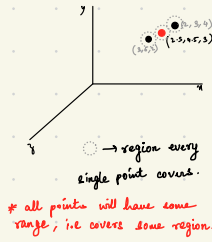 y
(2, 3, 4)
(2.5, 4.5, 3)
x
→ region every
single point covers.
* all points will have some
range, i.e covers some region.